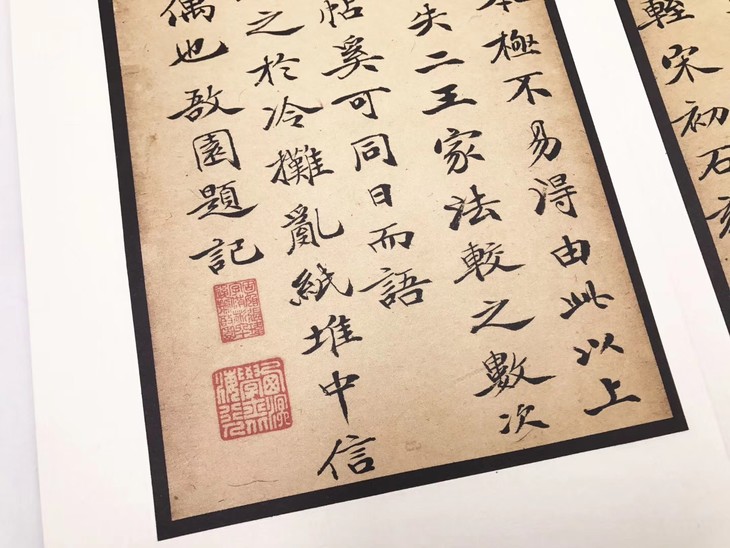 宋初石
極不易得由此以上
失二王家法較之數次
帖奚可同日而語
之於冷攤亂紙堆中信
偶也敔園題記